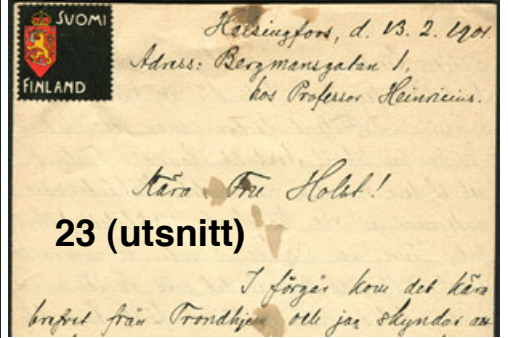 SUOMI
FINLAND
Helsingfors, d. 13. 2. 1901.
Adress: Bergmansgatan 1,
hos Professor Heinricius.
Kära Fru Holst!
23 (utsnitt)
I förgår kom det kära
brefvet från Trondhjem och jag skyndar att